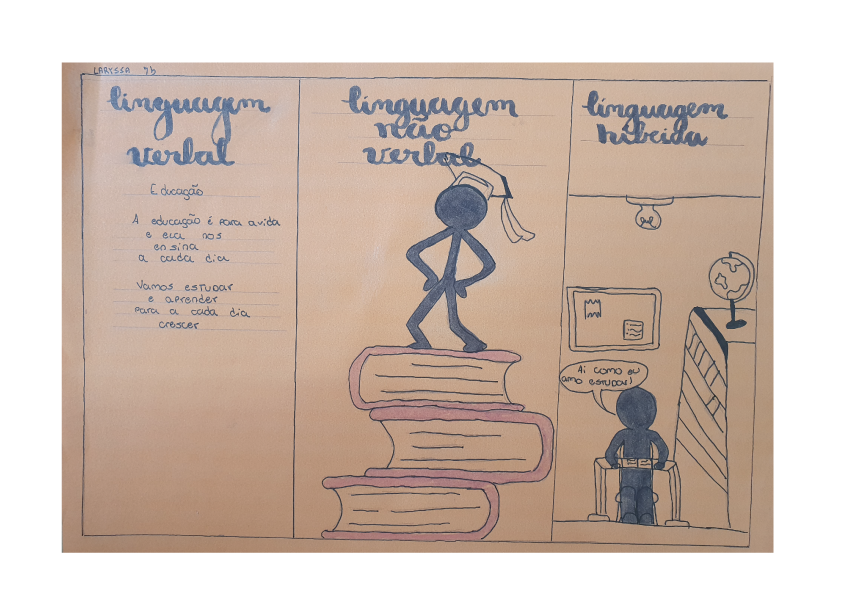 LARYSSA 7b
linguagem
verbal
Educação
A educação é para a vida
e ela nos
ensina
a cada dia
Vamos estudar
e aprender
para a cada dia
crescer
linguagem
não
verbal
linguagem
híbrida
Ai como eu
amo estudar!